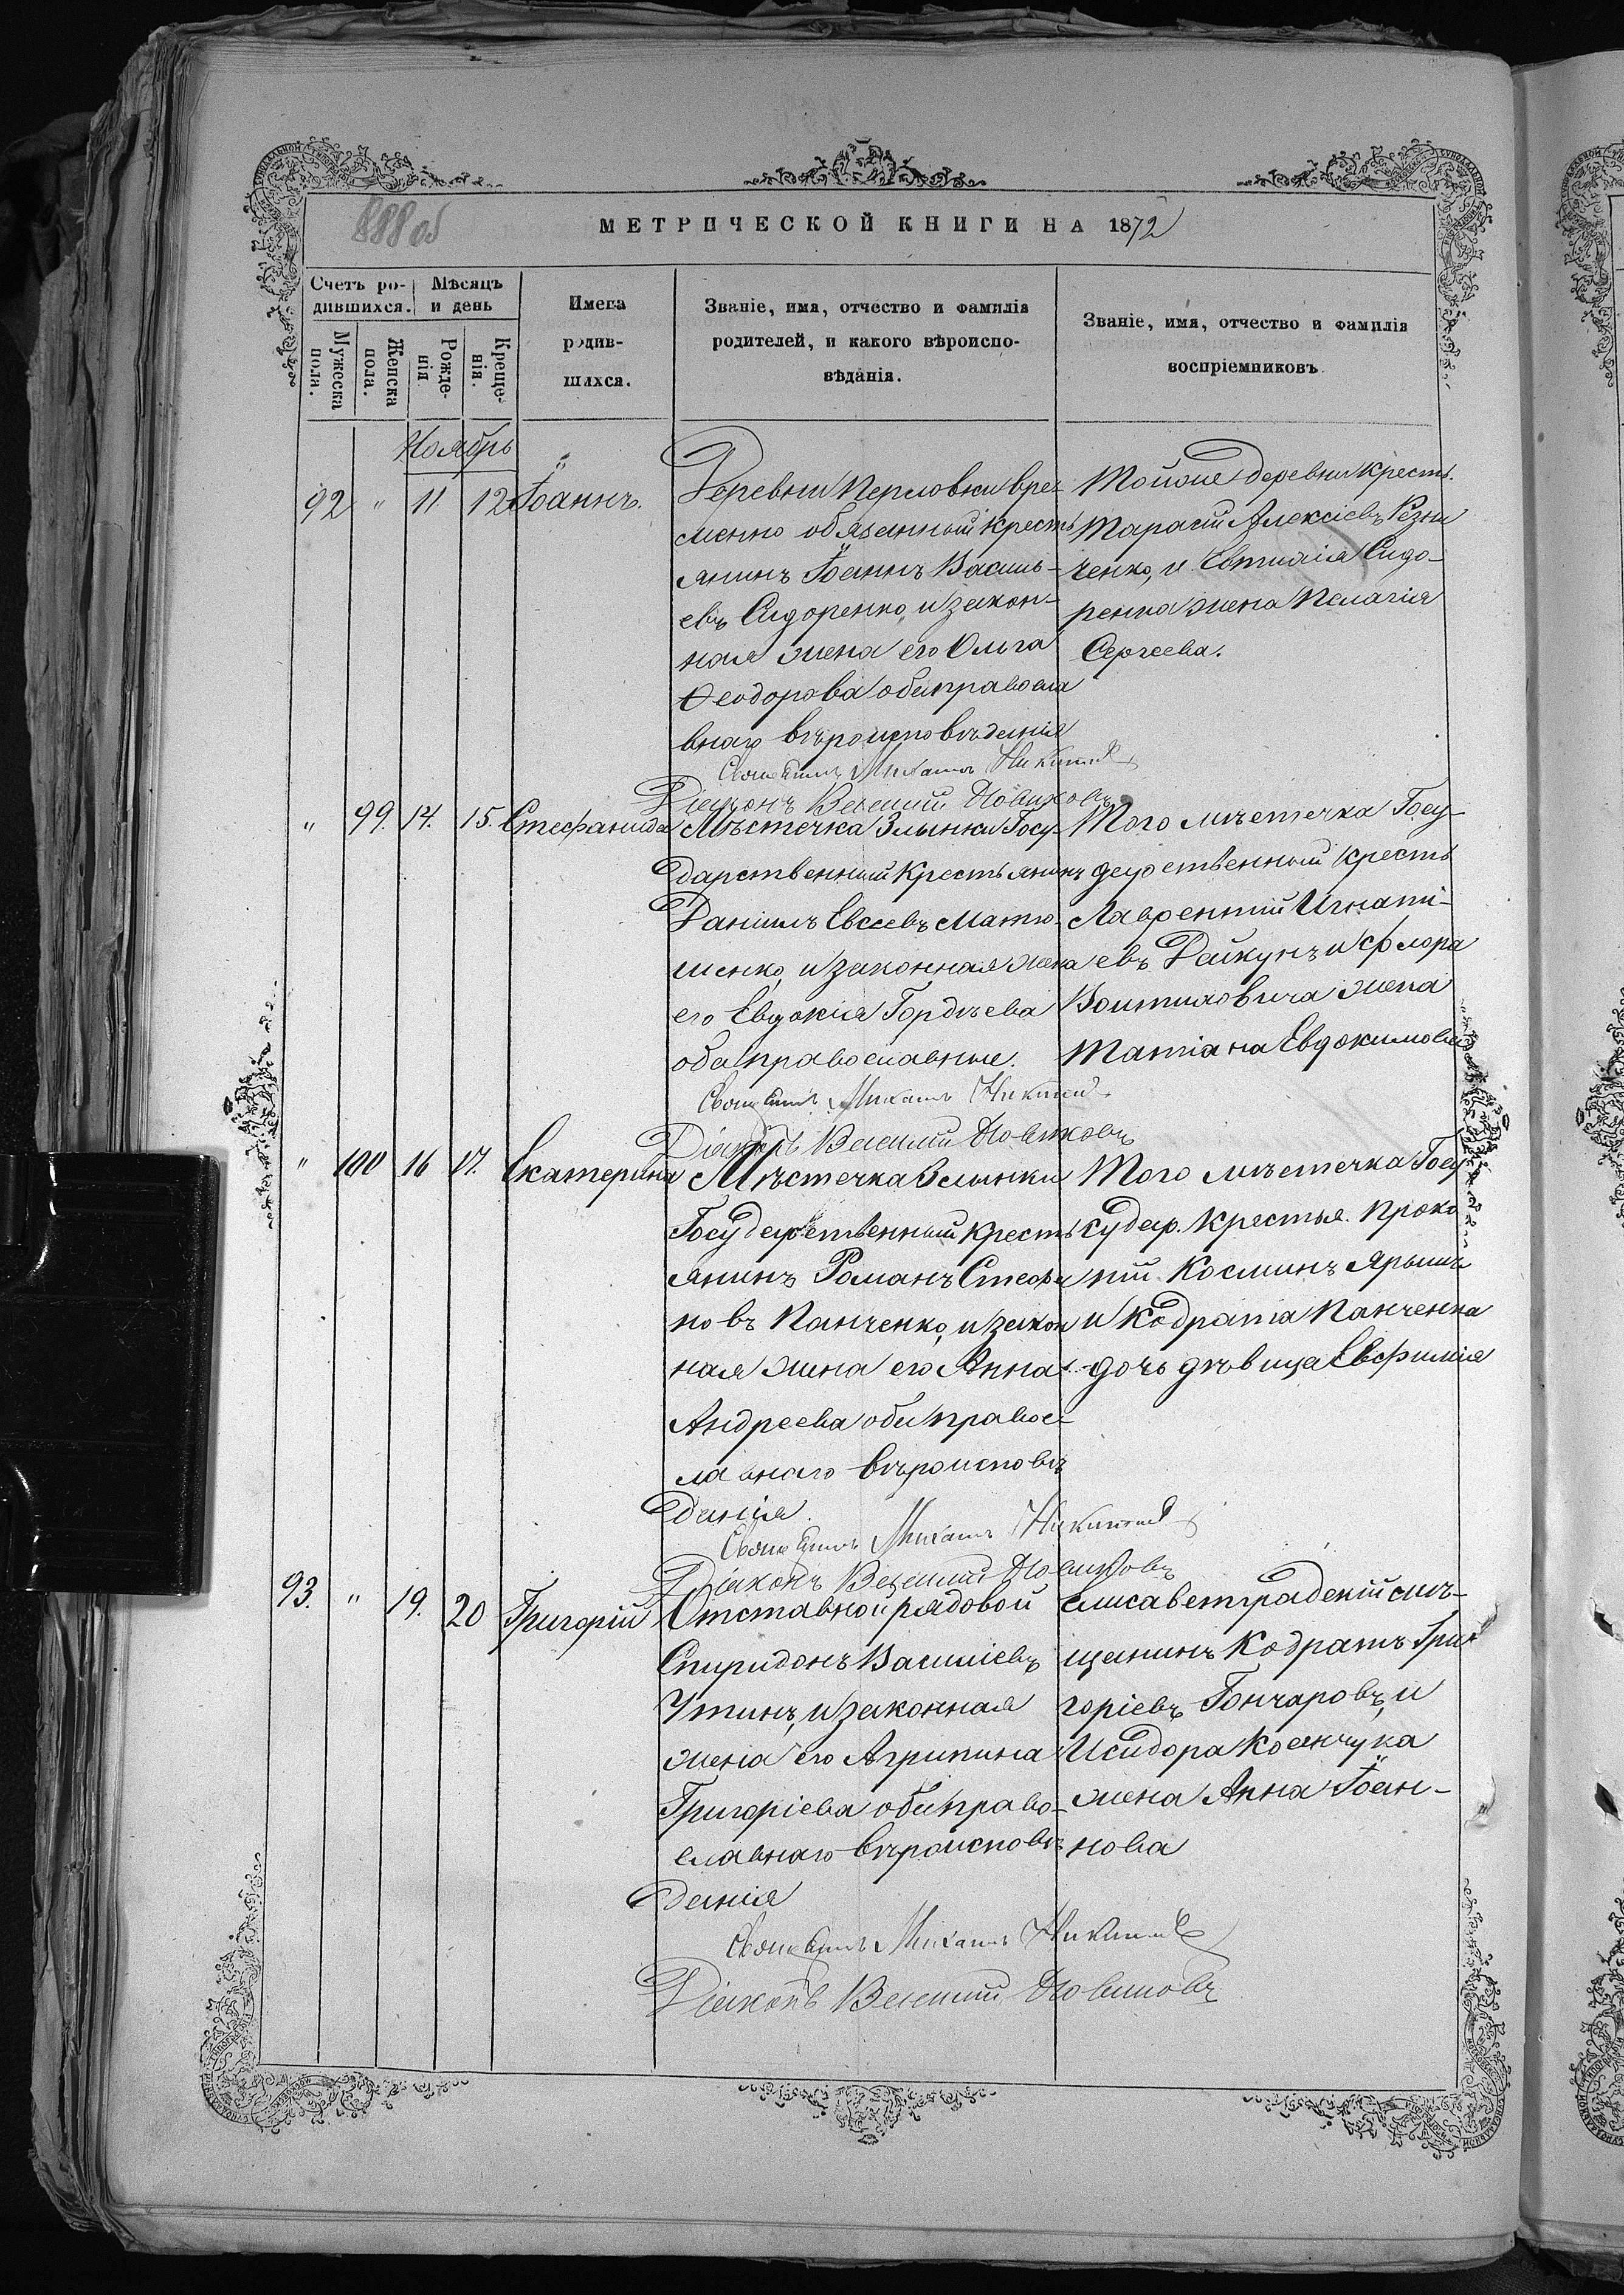 888 об
МЕТРИЧЕСКОЙ КНИГИ НА 1872
Счетъ ро-
дившихся.
Мѣсяцъ
и день
Имена
родив-
шихся.
Званіе, имя, отчество и фамилія
родителей, и какого вѣроиспо-
вѣданія.
Званіе, имя, отчество и фамилія
воспріемниковъ
Мужеска
пола.
Женска
пола.
Рожде-
нія
Креще-
нія.
Ноябрь
92 " 11 12 Іоаннъ.
Деревни Перловки вре-
менно обязанный кресть
янинъ Іоаннъ Василь-
евъ Сидоренко, и закон-
ная жена его Ольга
Ѳеодорова оба православ
внаго вѣроисповѣданія
Тойже деревни крест.
Тарасій Алексіевъ Резни
ченко, и Евтихія Сидо-
ренка жена Пелагія
Сергеева.
Священникъ Михаилъ
Діаконъ Василій Новиковъ
" 99. 14. 15. Стефанида
Мѣстечка Злынки Госу-
дарственный Крестьянинъ
Даніилъ Евсеевъ Матю-
шенко, и законная жена
его Евдокія Гордѣева
оба православные.
Того мѣстечка Госу-
дарственный кресть
Лаврентій Игнаті-
евъ Дейкунъ и Флора
Войтиховича жена
Татіана Евдокимова
Священникъ Михаилъ
Діаконъ Василій Новиковъ
" 100 16 17. Екатерина
Мѣстечка Злынки
Государственный кресть
янинъ Романъ Стефа
новъ Панченко, и закон
ная жена его Анна
Андреева оба правос-
лавнаго вѣроисповѣ
данія.
Того мѣстечка Госу
судар. крестья. Проко
пій Косминъ Ярышъ
и Кодрата Панченка
дочь дѣвица Евфимія
Священникъ Михаилъ
Діаконъ Василій Новиковъ
93. " 19. 20 Григорій
Отставной рядовой
Спиридонъ Василіевъ
Утинъ, и законная
жена его Агрипина
Григоріева оба право-
славнаго вѣроисповѣ
данія
Елисаветградскій мѣ-
щанинъ Кодратъ Гри
горіевъ Гончаровъ, и
Исидора Косенчука
жена Анна Іоан-
нова
Священникъ Михаилъ
Діаконъ Василій Новиковъ